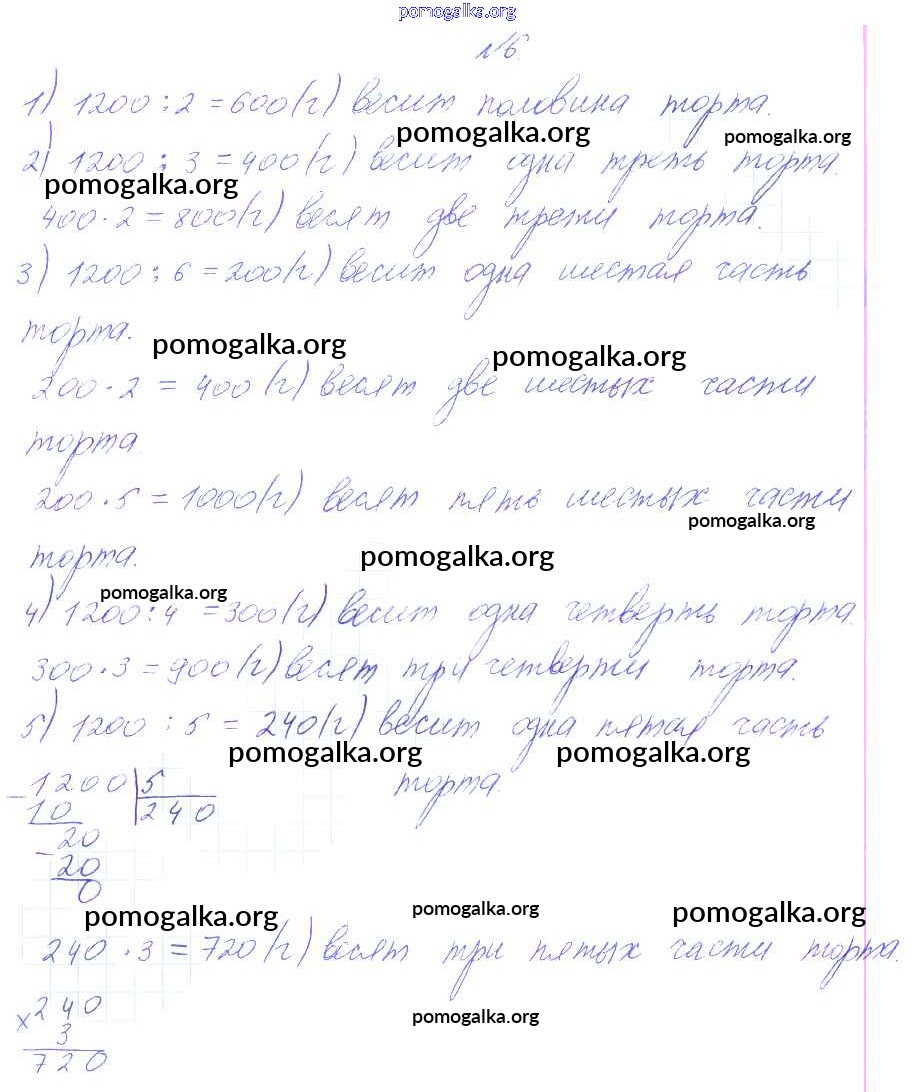 pomogalka.org
№6.
1) 1200 : 2 = 600 (г) весит половина торта.
pomogalka.org pomogalka.org
2) 1200 : 3 = 400 (г) весит одна треть торта.
pomogalka.org
400 · 2 = 800 (г) весят две трети торта.
3) 1200 : 6 = 200 (г) весит одна шестая часть
торта.
pomogalka.org pomogalka.org
200 · 2 = 400 (г) весят две шестых части
торта.
200 · 5 = 1000 (г) весят пять шестых части
pomogalka.org
торта.
pomogalka.org
pomogalka.org
4) 1200 : 4 = 300 (г) весит одна четверть торта.
300 · 3 = 900 (г) весят три четверти торта.
5) 1200 : 5 = 240 (г) весит одна пятая часть
pomogalka.org pomogalka.org
торта.
- 1200 | 5
10 240
- 20
20
0
pomogalka.org pomogalka.org pomogalka.org
240 · 3 = 720 (г) весят три пятых части торта.
× 240
3
pomogalka.org
720